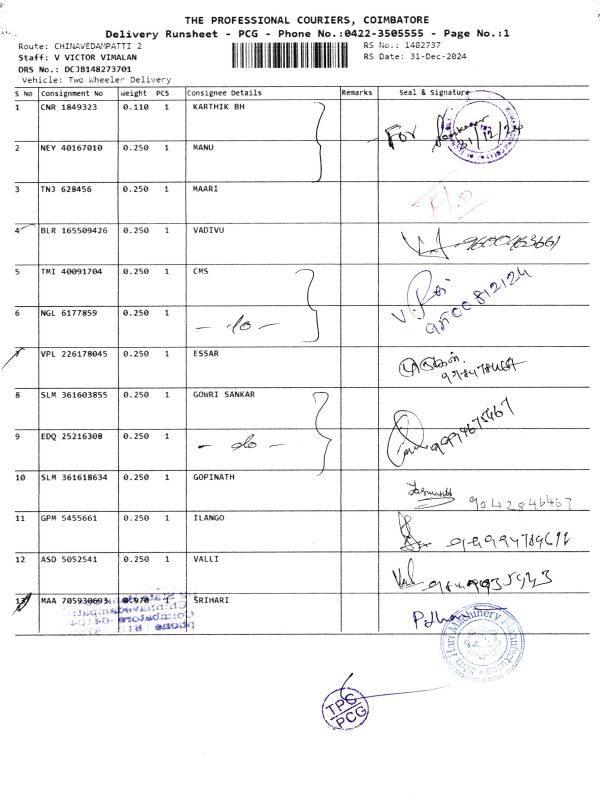 THE PROFESSIONAL COURIERS, COIMBATORE
Delivery Runsheet - PCG - Phone No.:0422-3505555 - Page No.:1
Route: CHINAVEDAMPATTI 2 RS No.: 1482737
Staff: V VICTOR VIMALAN RS Date: 31-Dec-2024
DRS No.: DCJB148273701
Vehicle: Two Wheeler Delivery
S No Consignment No Weight PCS Consignee Details Remarks Seal & Signature
1 CNR 1849323 0.110 1 KARTHIK BH For 31/12/24
2 NEY 40167010 0.250 1 MANU
3 TNJ 628456 0.250 1 MAARI
4 BLR 165509426 0.250 1 VADIVU 9600463661
5 TMI 40091704 0.250 1 CMS
6 NGL 6177859 0.250 1 - do - 9500812124
7 VPL 226178045 0.250 1 ESSAR
8 SLM 361603855 0.250 1 GOWRI SANKAR
9 EDQ 25216308 0.250 1 - do - 9994675467
10 SLM 361618634 0.250 1 GOPINATH 9042846467
11 GPM 5455661 0.250 1 ILANGO
12 ASD 5052541 0.250 1 VALLI
13 MAA 705930693 0.970 1 SRIHARI
TPC
PCG